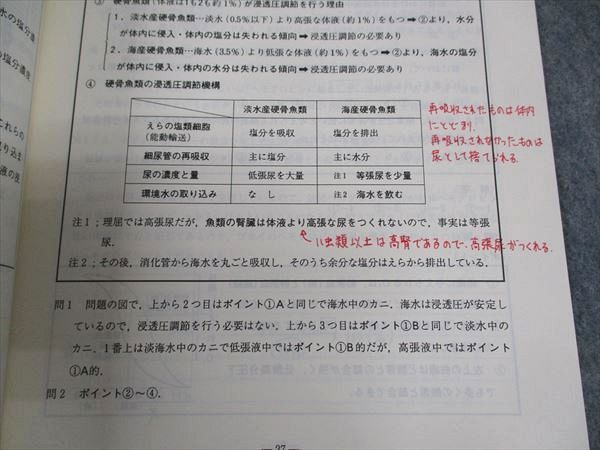 ③ 硬骨魚類（体液は1も2も約1％）が浸透圧調節を行う理由
1．淡水産硬骨魚類…淡水（0.5％以下）より高張な体液（約1％）をもつ→①より，水分
が体内に侵入・体内の塩分は失われる傾向→浸透圧調節の必要あり
2．海産硬骨魚類…海水（3.5％）より低張な体液（約1％）をもつ→②より，海水の塩分
が体内に侵入・体内の水分は失われる傾向→浸透圧調節の必要あり
④ 硬骨魚類の浸透圧調節機構
淡水産硬骨魚類 海産硬骨魚類
えらの塩類細胞
（能動輸送） 塩分を吸収 塩分を排出
細尿管の再吸収 主に塩分 主に水分
尿の濃度と量 低張尿を大量 注1 等張尿を少量
環境水の取り込み なし 注2 海水を飲む
再吸収されたものは体内
にとどまり，
再吸収されなかったものは
尿として捨てられる．
注1；理屈では高張尿だが，魚類の腎臓は体液より高張な尿をつくれないので，事実は等張
尿．
は虫類以上は高腎であるので，高張尿がつくれる．
注2；その後，消化管から海水を丸ごと吸収し，そのうち余分な塩分はえらから排出している．
問1 問題の図で，上から2つ目はポイント①Aと同じで海水中のカニ．海水は浸透圧が安定し
ているので，浸透圧調節を行う必要はない．上から3つ目はポイント①Bと同じで淡水中の
カニ．1番上は淡海水中のカニで低張液中ではポイント①B的だが，高張液中ではポイント
①A的．
問2 ポイント②～④．
― 27 ―